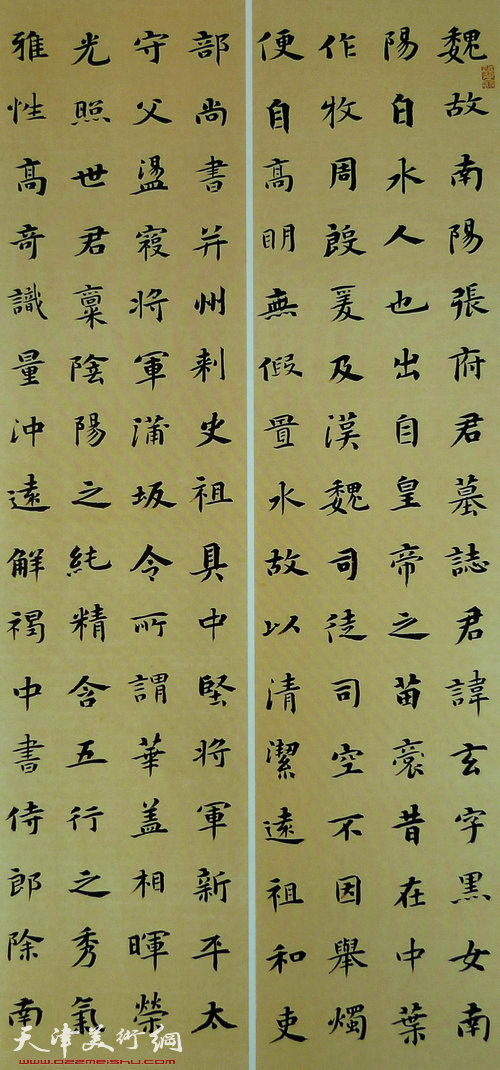 魏故南陽張府君墓誌君諱玄字黑女南
陽白水人也出自皇帝之苗裔昔在中葉
作牧周殷爰及漢魏司徒司空不因舉燭
便自高明無假置水故以清潔遠祖和吏
部尚書并州刺史祖具中堅將軍新平太
守父盪寇將軍蒲坂令所謂華盖相暉榮
光照世君稟陰陽之純精含五行之秀氣
雅性高奇識量沖遠解褐中書侍郎除南
天津美術網
www.022meishu.com